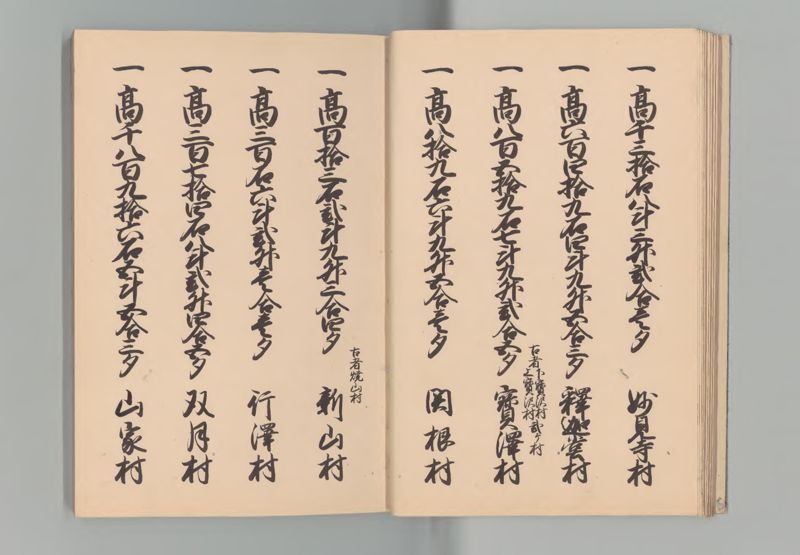 一高千三拾石八斗三升弐合壱夕 妙見寺村
一高六百四拾九石四斗九升五合三夕 釋迦堂村
一高八百五拾九石七斗九升弐合五夕 寳澤村
古者下寳沢村上寳沢村弐ケ村
一高八拾九石六斗九升五合壱夕 関根村
一高百拾三石弐斗九升二合四夕 新山村
古者焼山村
一高三百石六斗弐升壱合壱夕 行澤村
一高三百七拾四石八斗弐升四合五夕 双月村
一高千八百九拾六石五斗五合三夕 山家村